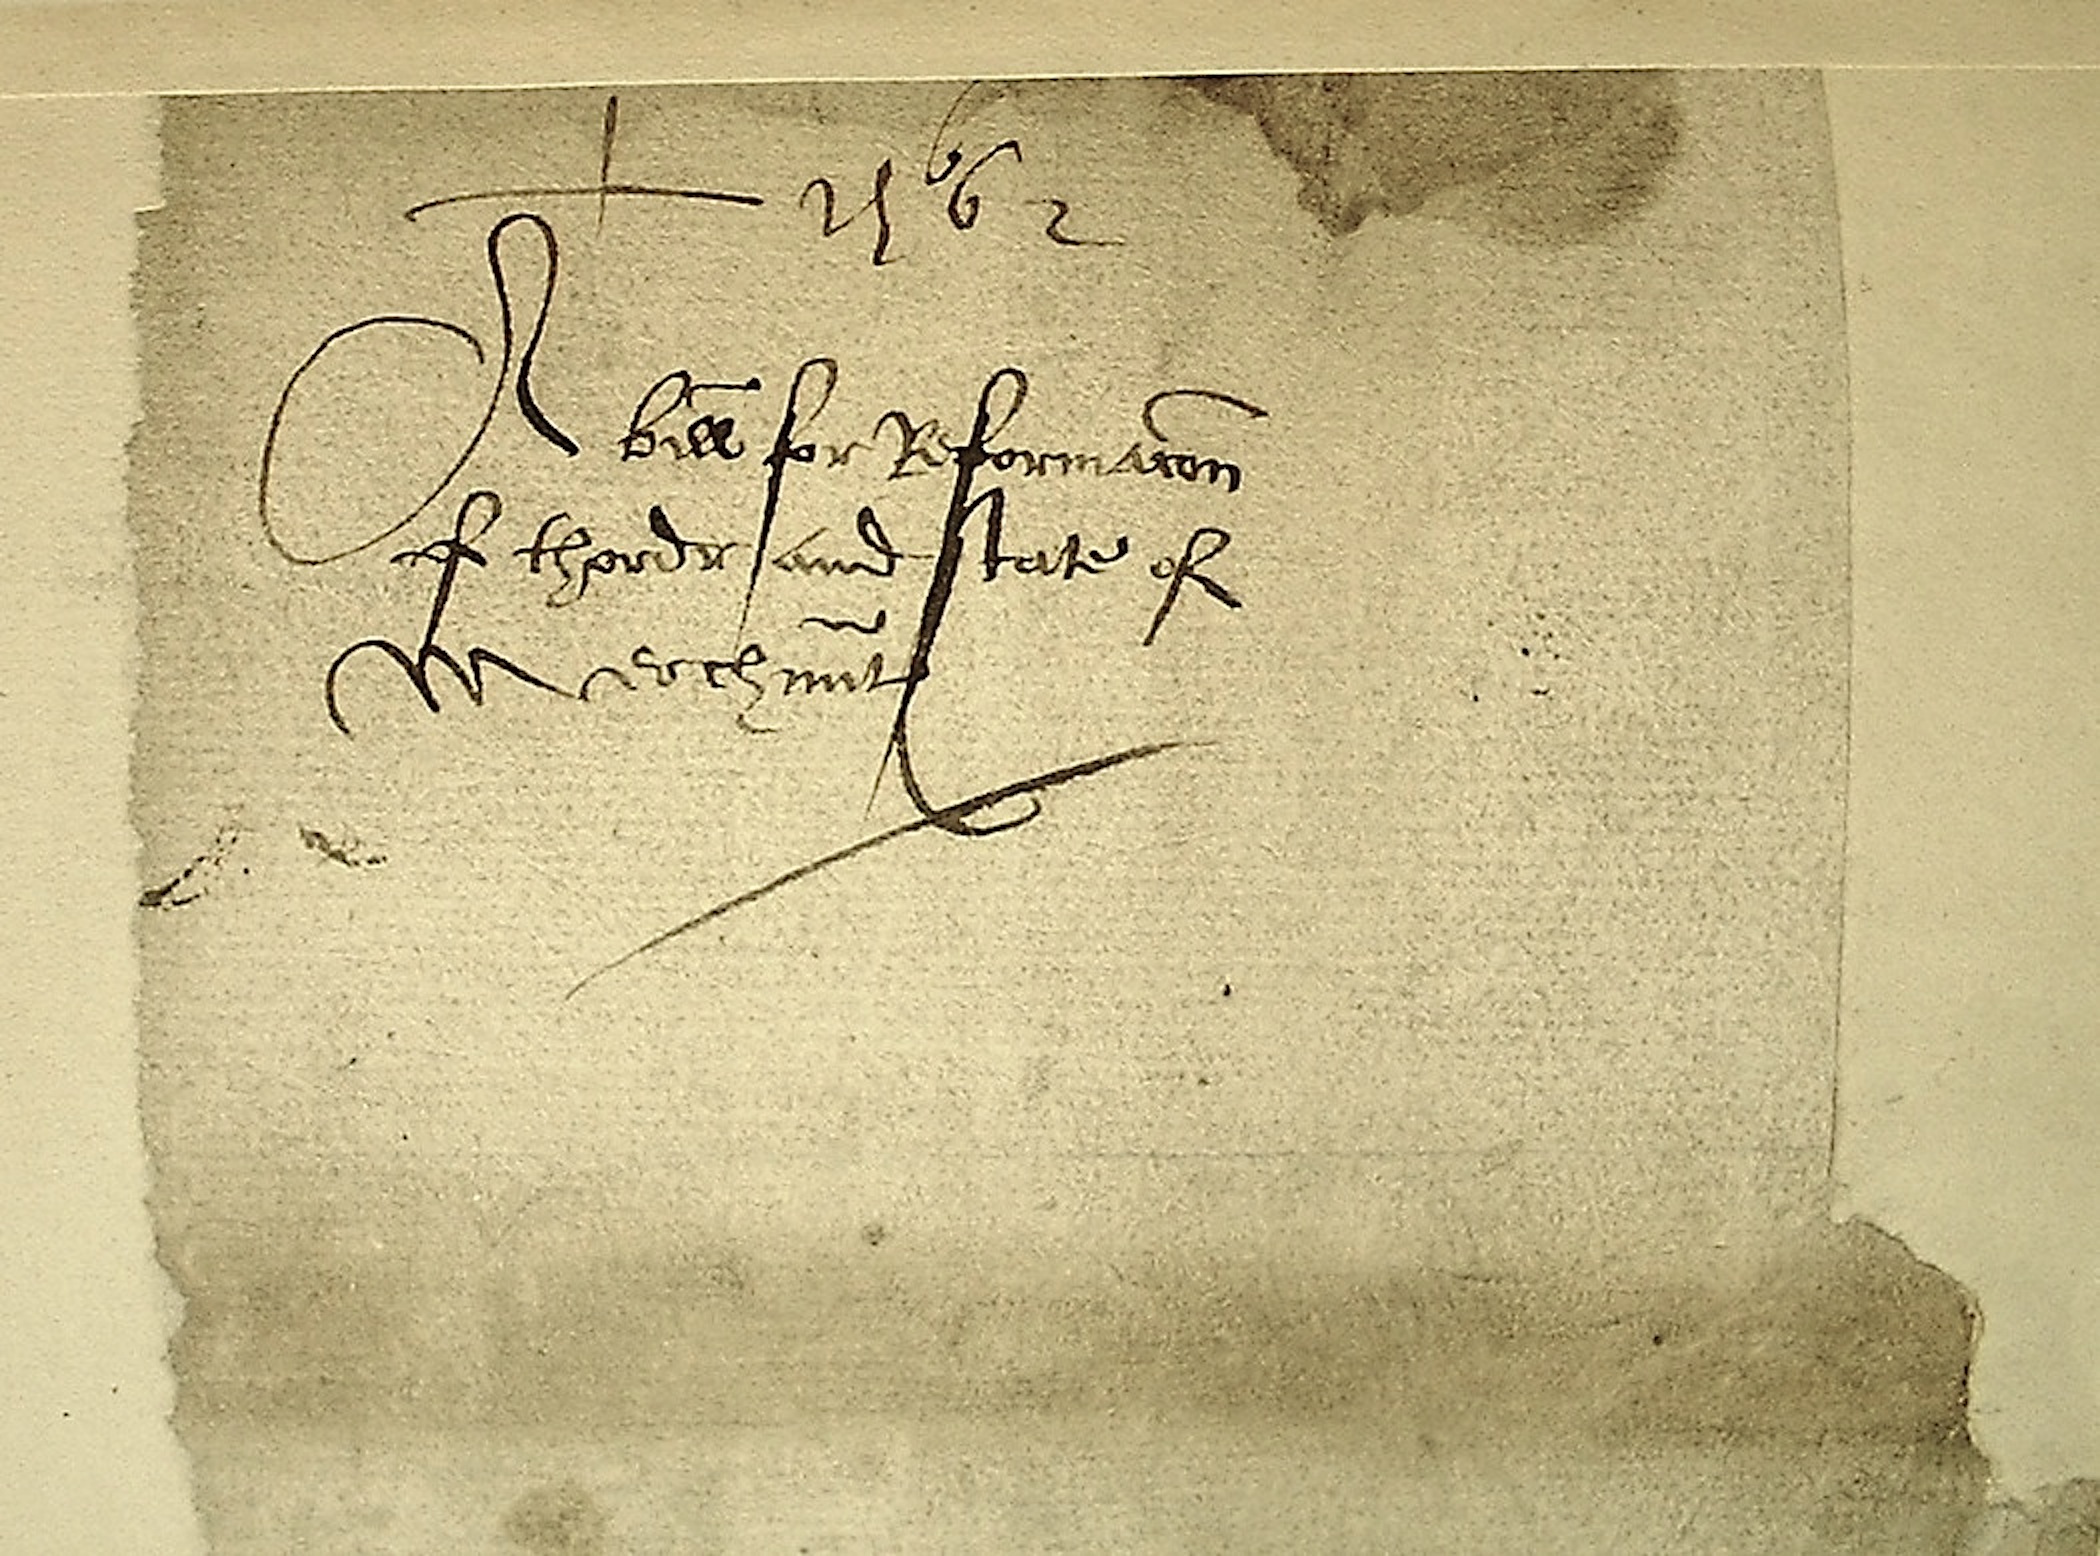 1562
A bill for Reformacon
of thordr and state of
Merchmt